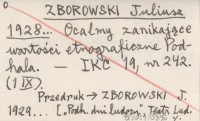 ZBOROWSKI Juliusz
1928... Ocalmy zanikające
wartości etnograficzne Pod-
hala. — IKC 19, nr 242.
(1 IX).
Przedruk → ZBOROWSKI J.
1929... [w: Podh. dni ludozn. Teatr Lud.